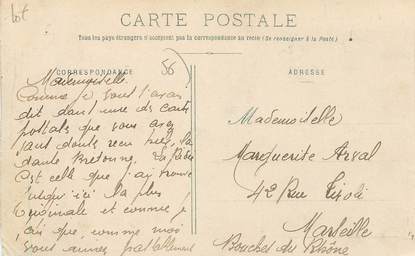 lot
CARTE POSTALE
Tous les pays étrangers n'acceptent pas la correspondance au recto (Se renseigner à la Poste.)
CORRESPONDANCE
56
ADRESSE
Mademoiselle
Comme je vous l'avais
dit dans une de cartes
postals que vous avez
sans doute reçu hier, la
dante Bretonne. La
est celle que j'ai trouvé
jusqu'ici la plus
originale et comme je
sais que, comme moi
vous aimez
Mademoiselle
Marguerite Arval
42 Rue Tivoli
Marseille
Bouches du Rhône